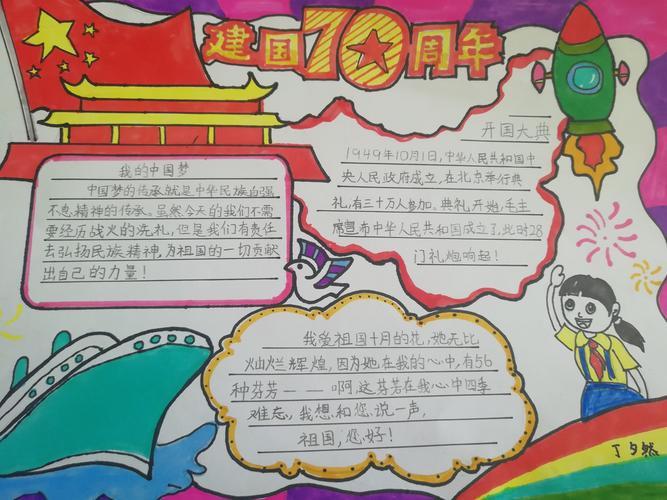 建国70周年
我的中国梦
中国梦的传承就是中华民族自强
不息精神的传承。虽然今天的我们不需
要经历战火的洗礼,但是我们有责任
去弘扬民族精神,为祖国的一切贡献
出自己的力量!
开国大典
1949年10月1日,中华人民共和国中
央人民政府成立,在北京举行典
礼,有三十万人参加。典礼开始,毛主
席宣布中华人民共和国成立了,此时28
门礼炮响起!
我爱祖国十月的花,她无比
灿烂辉煌,因为她在我的心中,有56
种芬芳——啊,这芬芳在我心中四季
难忘,我想和您说一声,
祖国,您好!
丁夕然